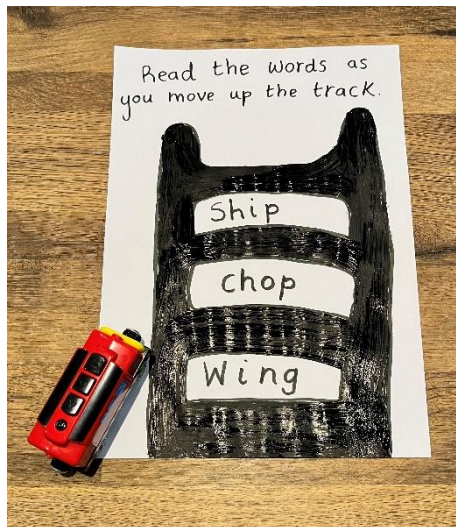 Read the words as
you move up the track.
Ship
chop
Wing